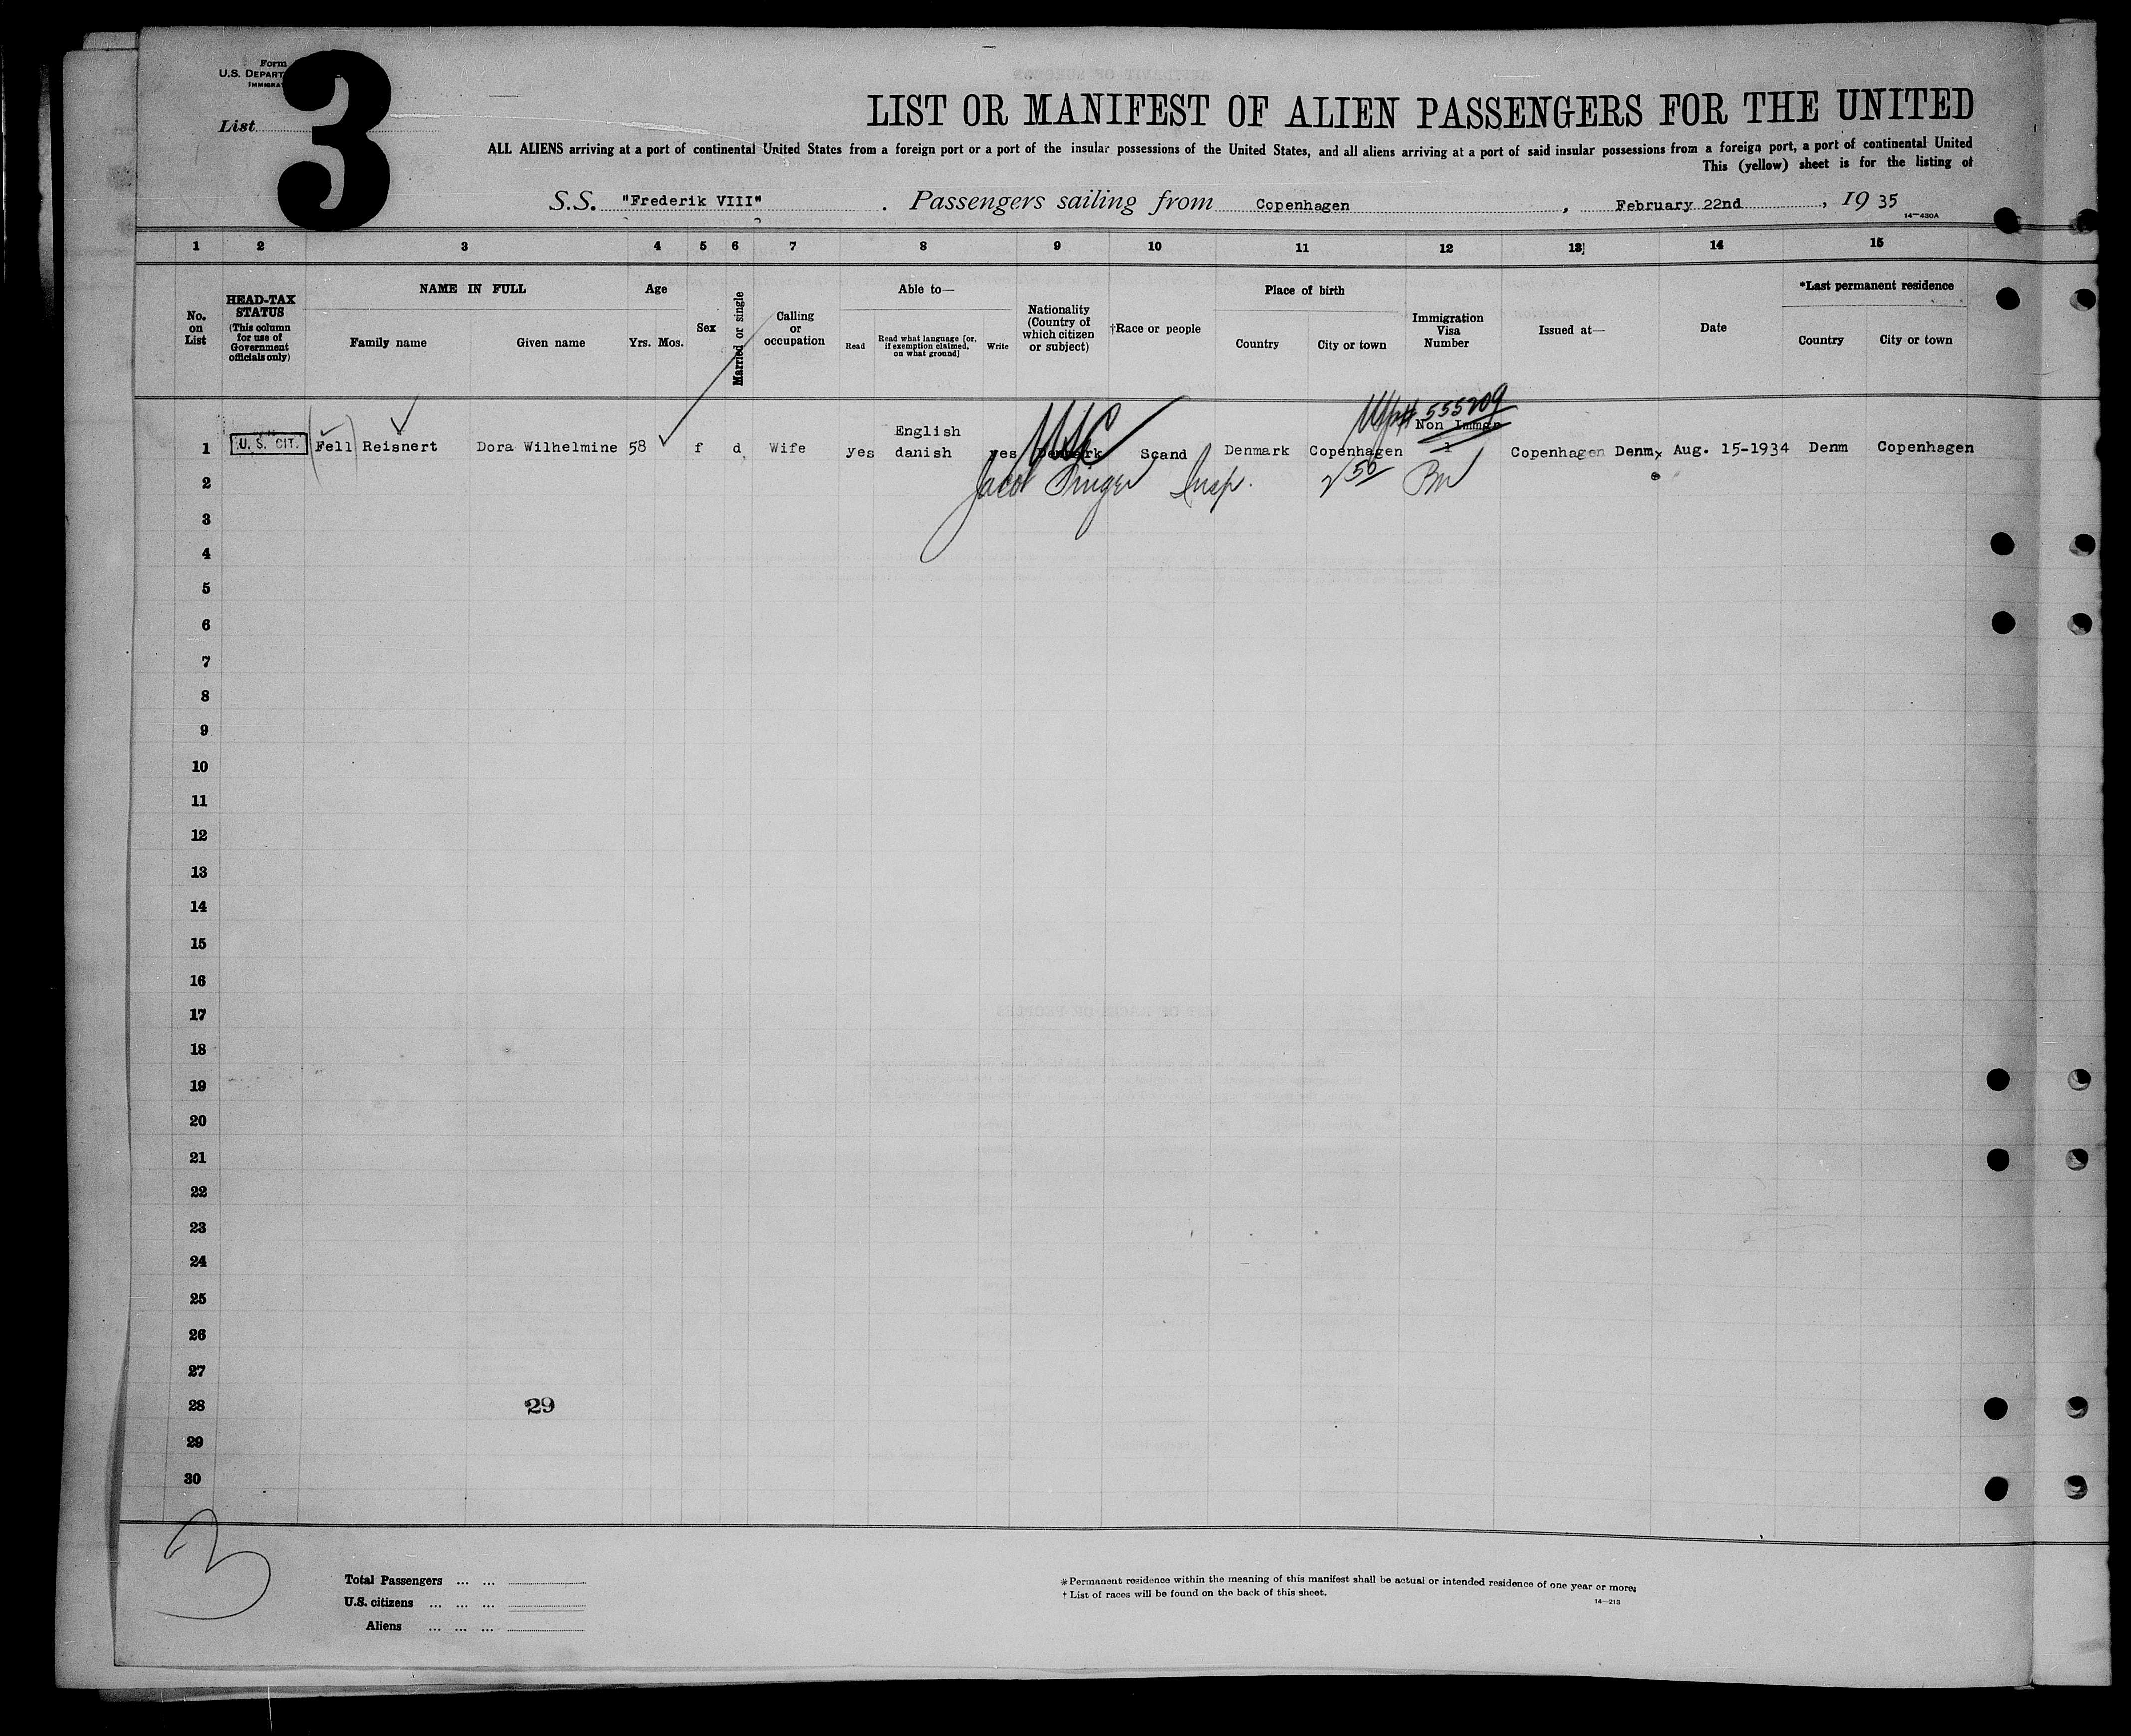 Form
U.S. DEPART
IMMIGRA
List
3
LIST OR MANIFEST OF ALIEN PASSENGERS FOR THE UNITED
ALL ALIENS arriving at a port of continental United States from a foreign port or a port of the insular possessions of the United States, and all aliens arriving at a port of said insular possessions from a foreign port, a port of continental United
This (yellow) sheet is for the listing of
S.S. "Frederik VIII" . Passengers sailing from Copenhagen , February 22nd , 19 35
14—430A
1 2 3 4 5 6 7 8 9 10 11 12 13 14 15
No. on List
HEAD-TAX STATUS
(This column for use of Government officials only)
NAME IN FULL
Family name
Given name
Age
Yrs. Mos.
Sex
Married or single
Calling or occupation
Able to—
Read
Read what language [or, if exemption claimed, on what ground]
Write
Nationality (Country of which citizen or subject)
†Race or people
Place of birth
Country
City or town
Immigration Visa Number
Issued at—
Date
*Last permanent residence
Country
City or town
555209
English
Non Immgr
1 U. S. CIT. (Fell) Reisnert Dora Wilhelmine 58 f d Wife yes danish yes Denmark USC Scand Denmark Copenhagen 1 Copenhagen Denm, Aug. 15-1934 Denm Copenhagen
2 Jacob Singer Insp.
3
4
5
6
7
8
9
10
11
12
13
14
15
16
17
18
19
20
21
22
23
24
25
26
27
28 29
29
30
3
Total Passengers ... ...
U.S. citizens ... ... ...
Aliens ... ... ...
*Permanent residence within the meaning of this manifest shall be actual or intended residence of one year or more.
† List of races will be found on the back of this sheet.
14—213